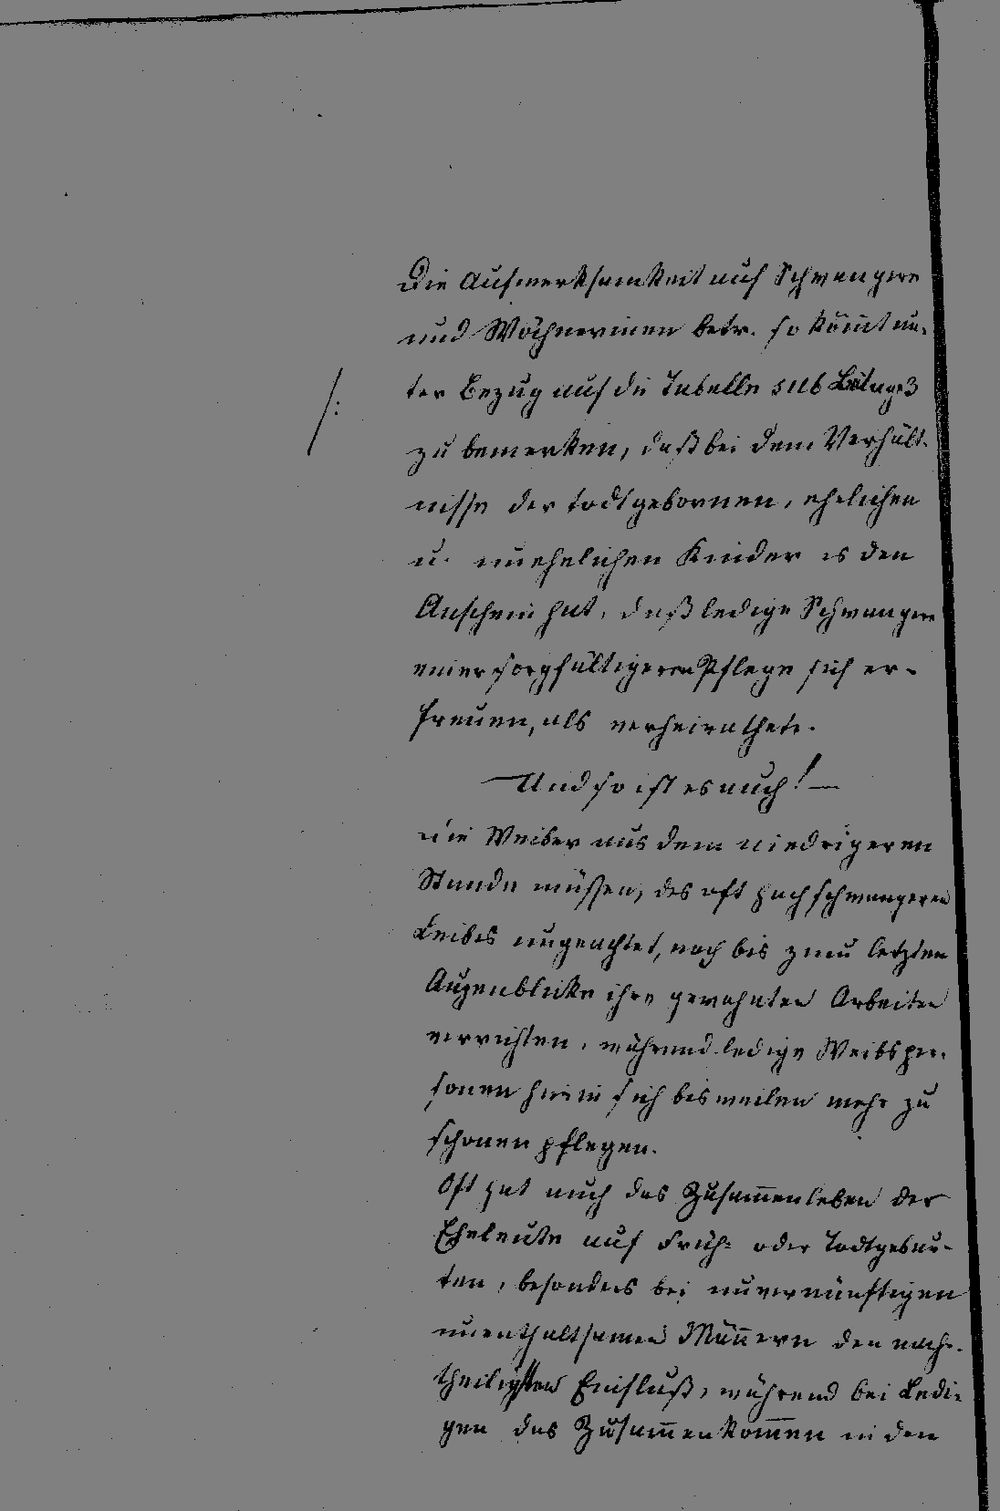 Die Aufmerksamkeit auf Schwangere
und Wöchnerinen betr. so kom̅t un-
ter Bezug auf die Tabelle sub Beilage 3
/: zu bemerken, daß bei dem Verhält-
nisse der todtgebornen, ehelichen
u. unehelichen Kinder es den
Anschein hat, daß ledige Schwangere
einer sorgfältigeren Pflege sich er-
freuen, als verheirathete.
Und so ist es auch! —
Die Weiber aus dem niedrigeren
Stande müssen, des oft hochschwangeren
Leibes ungeachtet, noch bis zum letzten
Augenblicke ihre gewohnten Arbeiten
verrichten, während ledige Weibsper-
sonen hierin sich bisweilen mehr zu
schonen pflegen.
Oft hat auch das Zusam̅enleben der
Eheleute auf Früh- oder Todtgebur-
ten, besonders bei unvernünftigen
unenthaltsamen Män̅ern den nach-
theiligsten Einfluß, während bei Ledi-
gen das Zusam̅enkom̅en in den